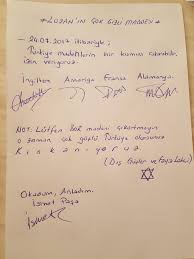 * LOZAN'IN ÇOK GİZLİ MADDESİ *
- 24.07.2017 itibariyle;
Türkiye müttefiklerin bor
izin veriyoruz.
İngiltere Amerika Fransa Almanya
NOT: Lütfen bor madeni çıkartmayın
o zaman çok güçlü Türkiye olursunuz
Kıskanıyoruz
(Dış Güçler ve Faiz Lobisi)
Okudum, Anladım.
İsmet Paşa